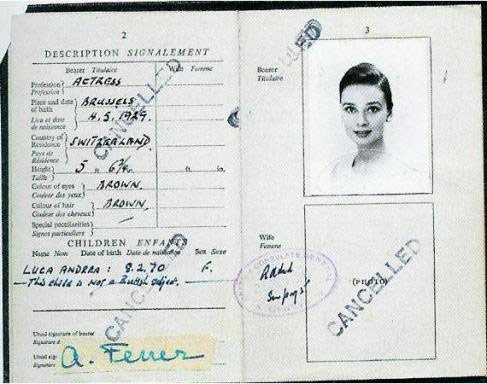 2
DESCRIPTION SIGNALEMENT
Bearer Titulaire
Wife Femme
Profession ACTRESS
Profession
Place and date BRUSSELS
of birth 4.5.1929.
Lieu et date
de naissance
Country of
Residence SWITZERLAND
Pays de
Résidence
Height 5 6¾
Taille
ft. in.
Colour of eyes BROWN.
Couleur des yeux
Colour of hair BROWN.
Couleur des cheveux
Special peculiarities
Signes particuliers
CHILDREN ENFANTS
Name Nom Date of birth Date de naissance Sex Sexe
LUCA ANDREA : 8.2.70
This child is not a British subject.
Usual signature of bearer
Signature d
Usual sig
Signature A. Ferrer
CANCELLED
CANCELLED
3
Bearer
Titulaire
Wife
Femme
(PHOTO)
CANCELLED
CONSULATE GENERAL